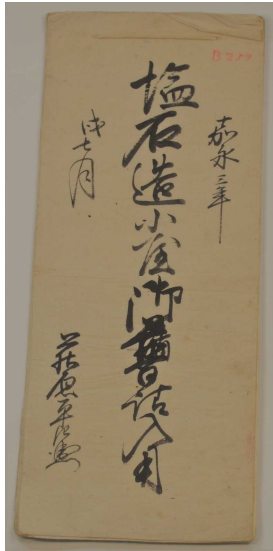 嘉永三年
塩石造小屋御普請入用
戌七月